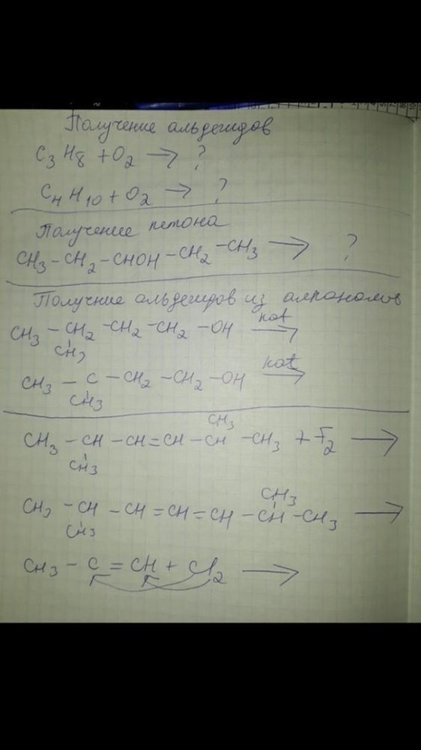 Получение альдегидов
C3H8 + O2 → ?
C4H10 + O2 → ?
Получение петона
CH3-CH2-CHOH-CH2-CH3 → ?
Получние альдегидов из алканолов
CH3-CH2-CH2-CH2-OH kat →
CH3
CH3-C-CH2-CH2-OH kat →
CH3
CH3
CH3-CH-CH=CH-CH-CH3 + F2 →
CH3
CH3
CH3-CH-CH=CH=CH-CH-CH3 →
CH3
CH3-C=CH + Cl2 →